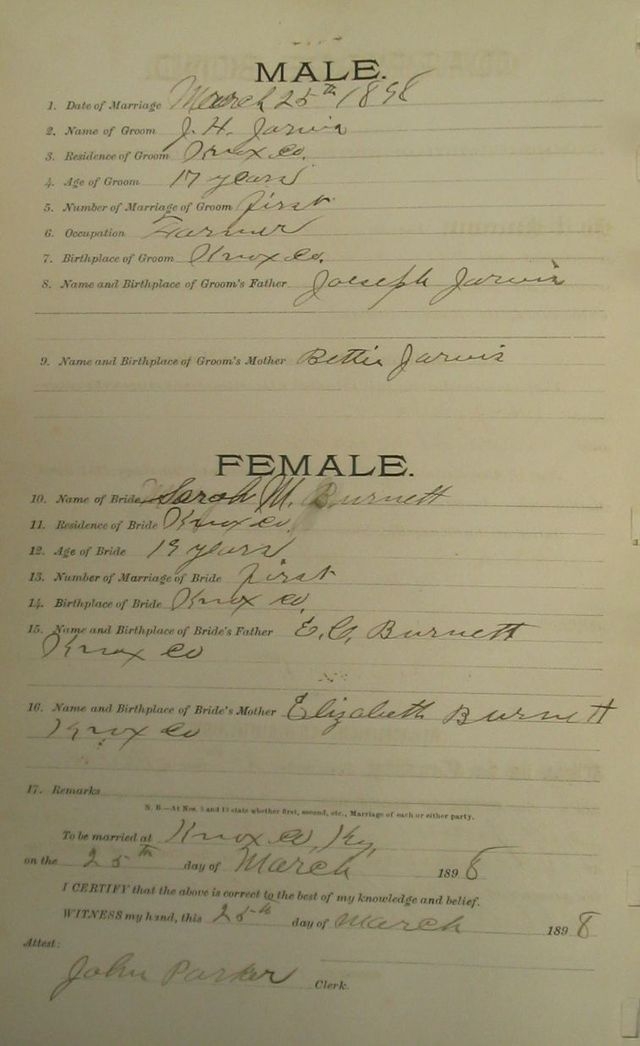 MALE.
1. Date of Marriage March 25th 1898
2. Name of Groom J. H. Jarvis
3. Residence of Groom Knox Co.
4. Age of Groom 17 years
5. Number of Marriage of Groom first
6. Occupation Farmer
7. Birthplace of Groom Knox Co.
8. Name and Birthplace of Groom's Father Joeseph Jarvis
9. Name and Birthplace of Groom's Mother Bettie Jarvis
FEMALE.
10. Name of Bride Sarah M. Burnett
11. Residence of Bride Knox Co
12. Age of Bride 19 years
13. Number of Marriage of Bride first
14. Birthplace of Bride Knox Co
15. Name and Birthplace of Bride's Father E. C. Burnett
Knox Co
16. Name and Birthplace of Bride's Mother Elizabeth Burnett
Knox Co
17. Remarks
N. B.—At Nos. 5 and 13 state whether first, second, etc., Marriage of each or either party.
To be married at Knox Co, Ky,
on the 25th day of March 1898
I CERTIFY that the above is correct to the best of my knowledge and belief.
WITNESS my hand, this 25th day of March 1898
Attest:
John Parker Clerk.